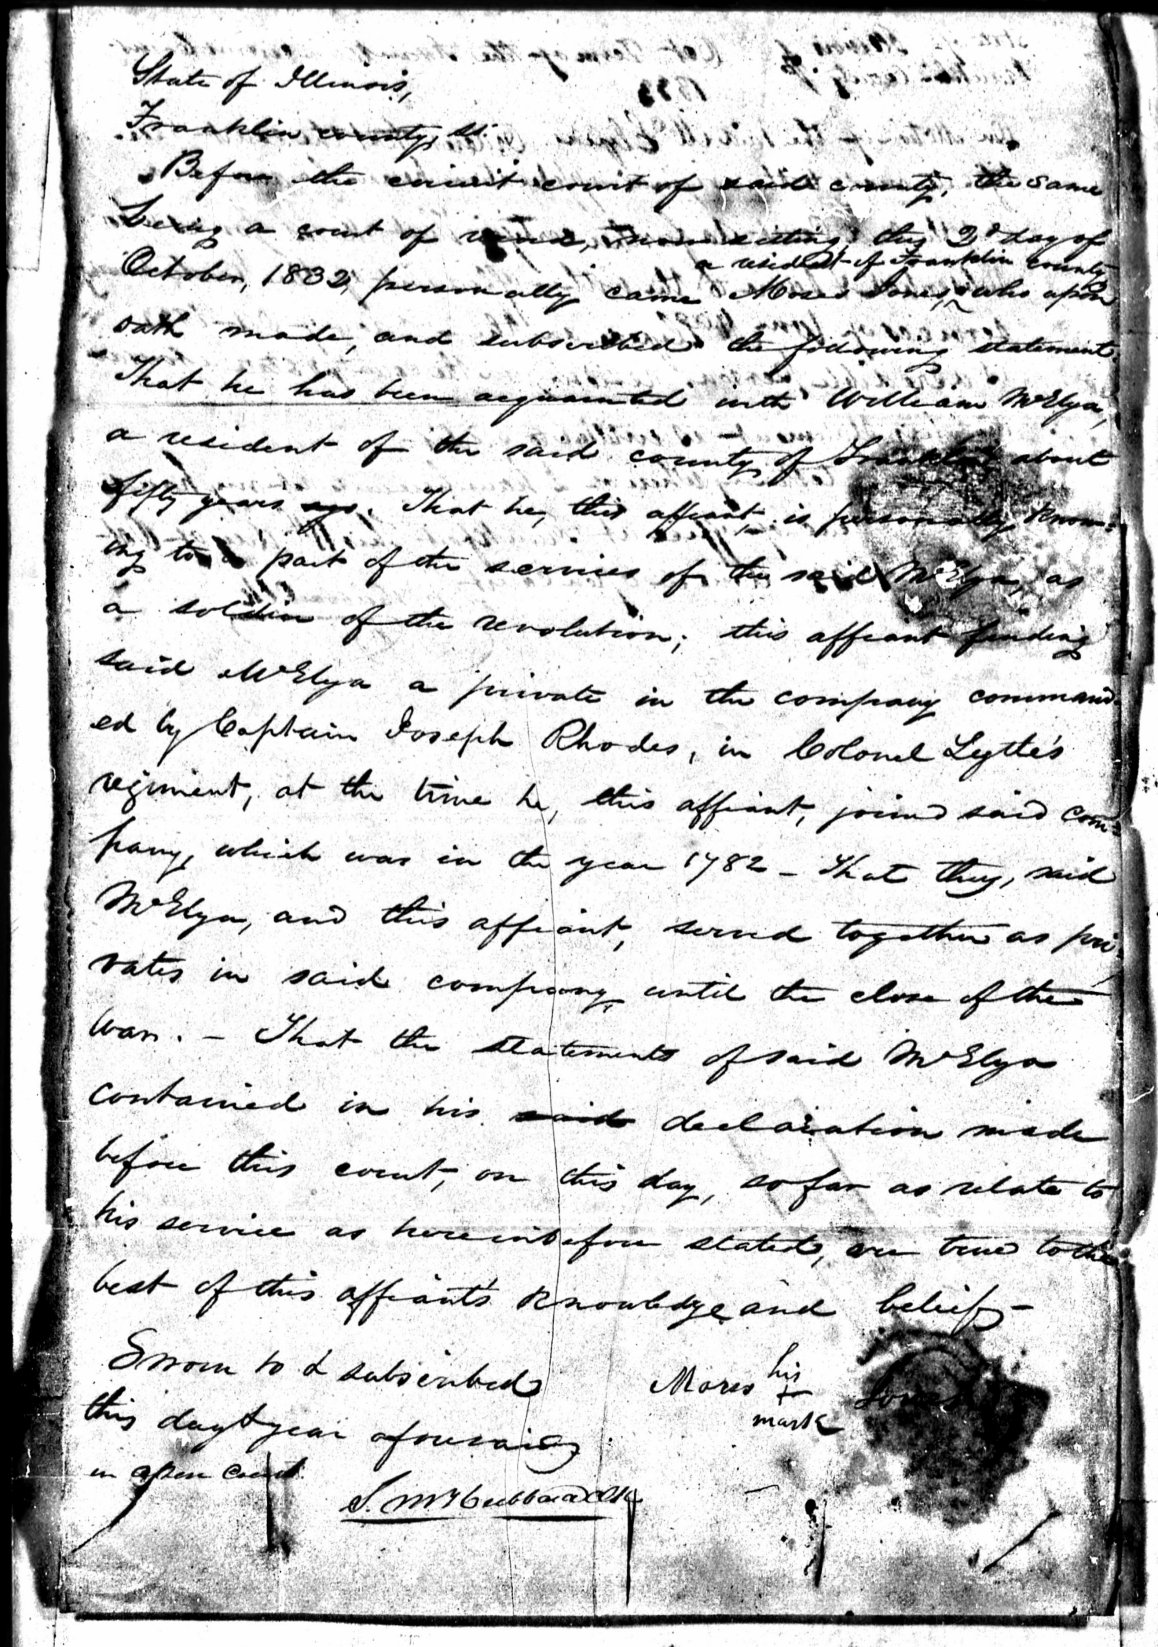 State of Illinois,
Franklin county, ss.
Before the circuit court of said county, the same
being a court of record, now sitting, this 2d day of
a resident of Franklin county
October, 1832, personally came Moses Jones, ^ who upon
oath made, and subscribed the following statement
That he has been acquainted with William McElya,
a resident of the said county of Franklin about
fifty years ago. That he, this affiant, is personally know-
ing to a part of the services of the said McElya, as
a soldier of the revolution; this affiant finding
said McElya a private in the company command
ed by Captain Joseph Rhodes, in Colonel Lytle's
regiment, at the time he, this affiant, joined said com-
pany, which was in the year 1782 – That they, said
McElya, and this affiant, served together as pri
vates in said company, until the close of the
war. – That the statements of said McElya
contained in his said declaration made
before this court, on this day, so far as relate to
his service as hereinbefore stated, are true to the
best of this affiant's knowledge and belief –
Sworn to & subscribed
this day & year aforesaid
in open court
his
Moses + Jones
mark
S. M. Hubbard Clk